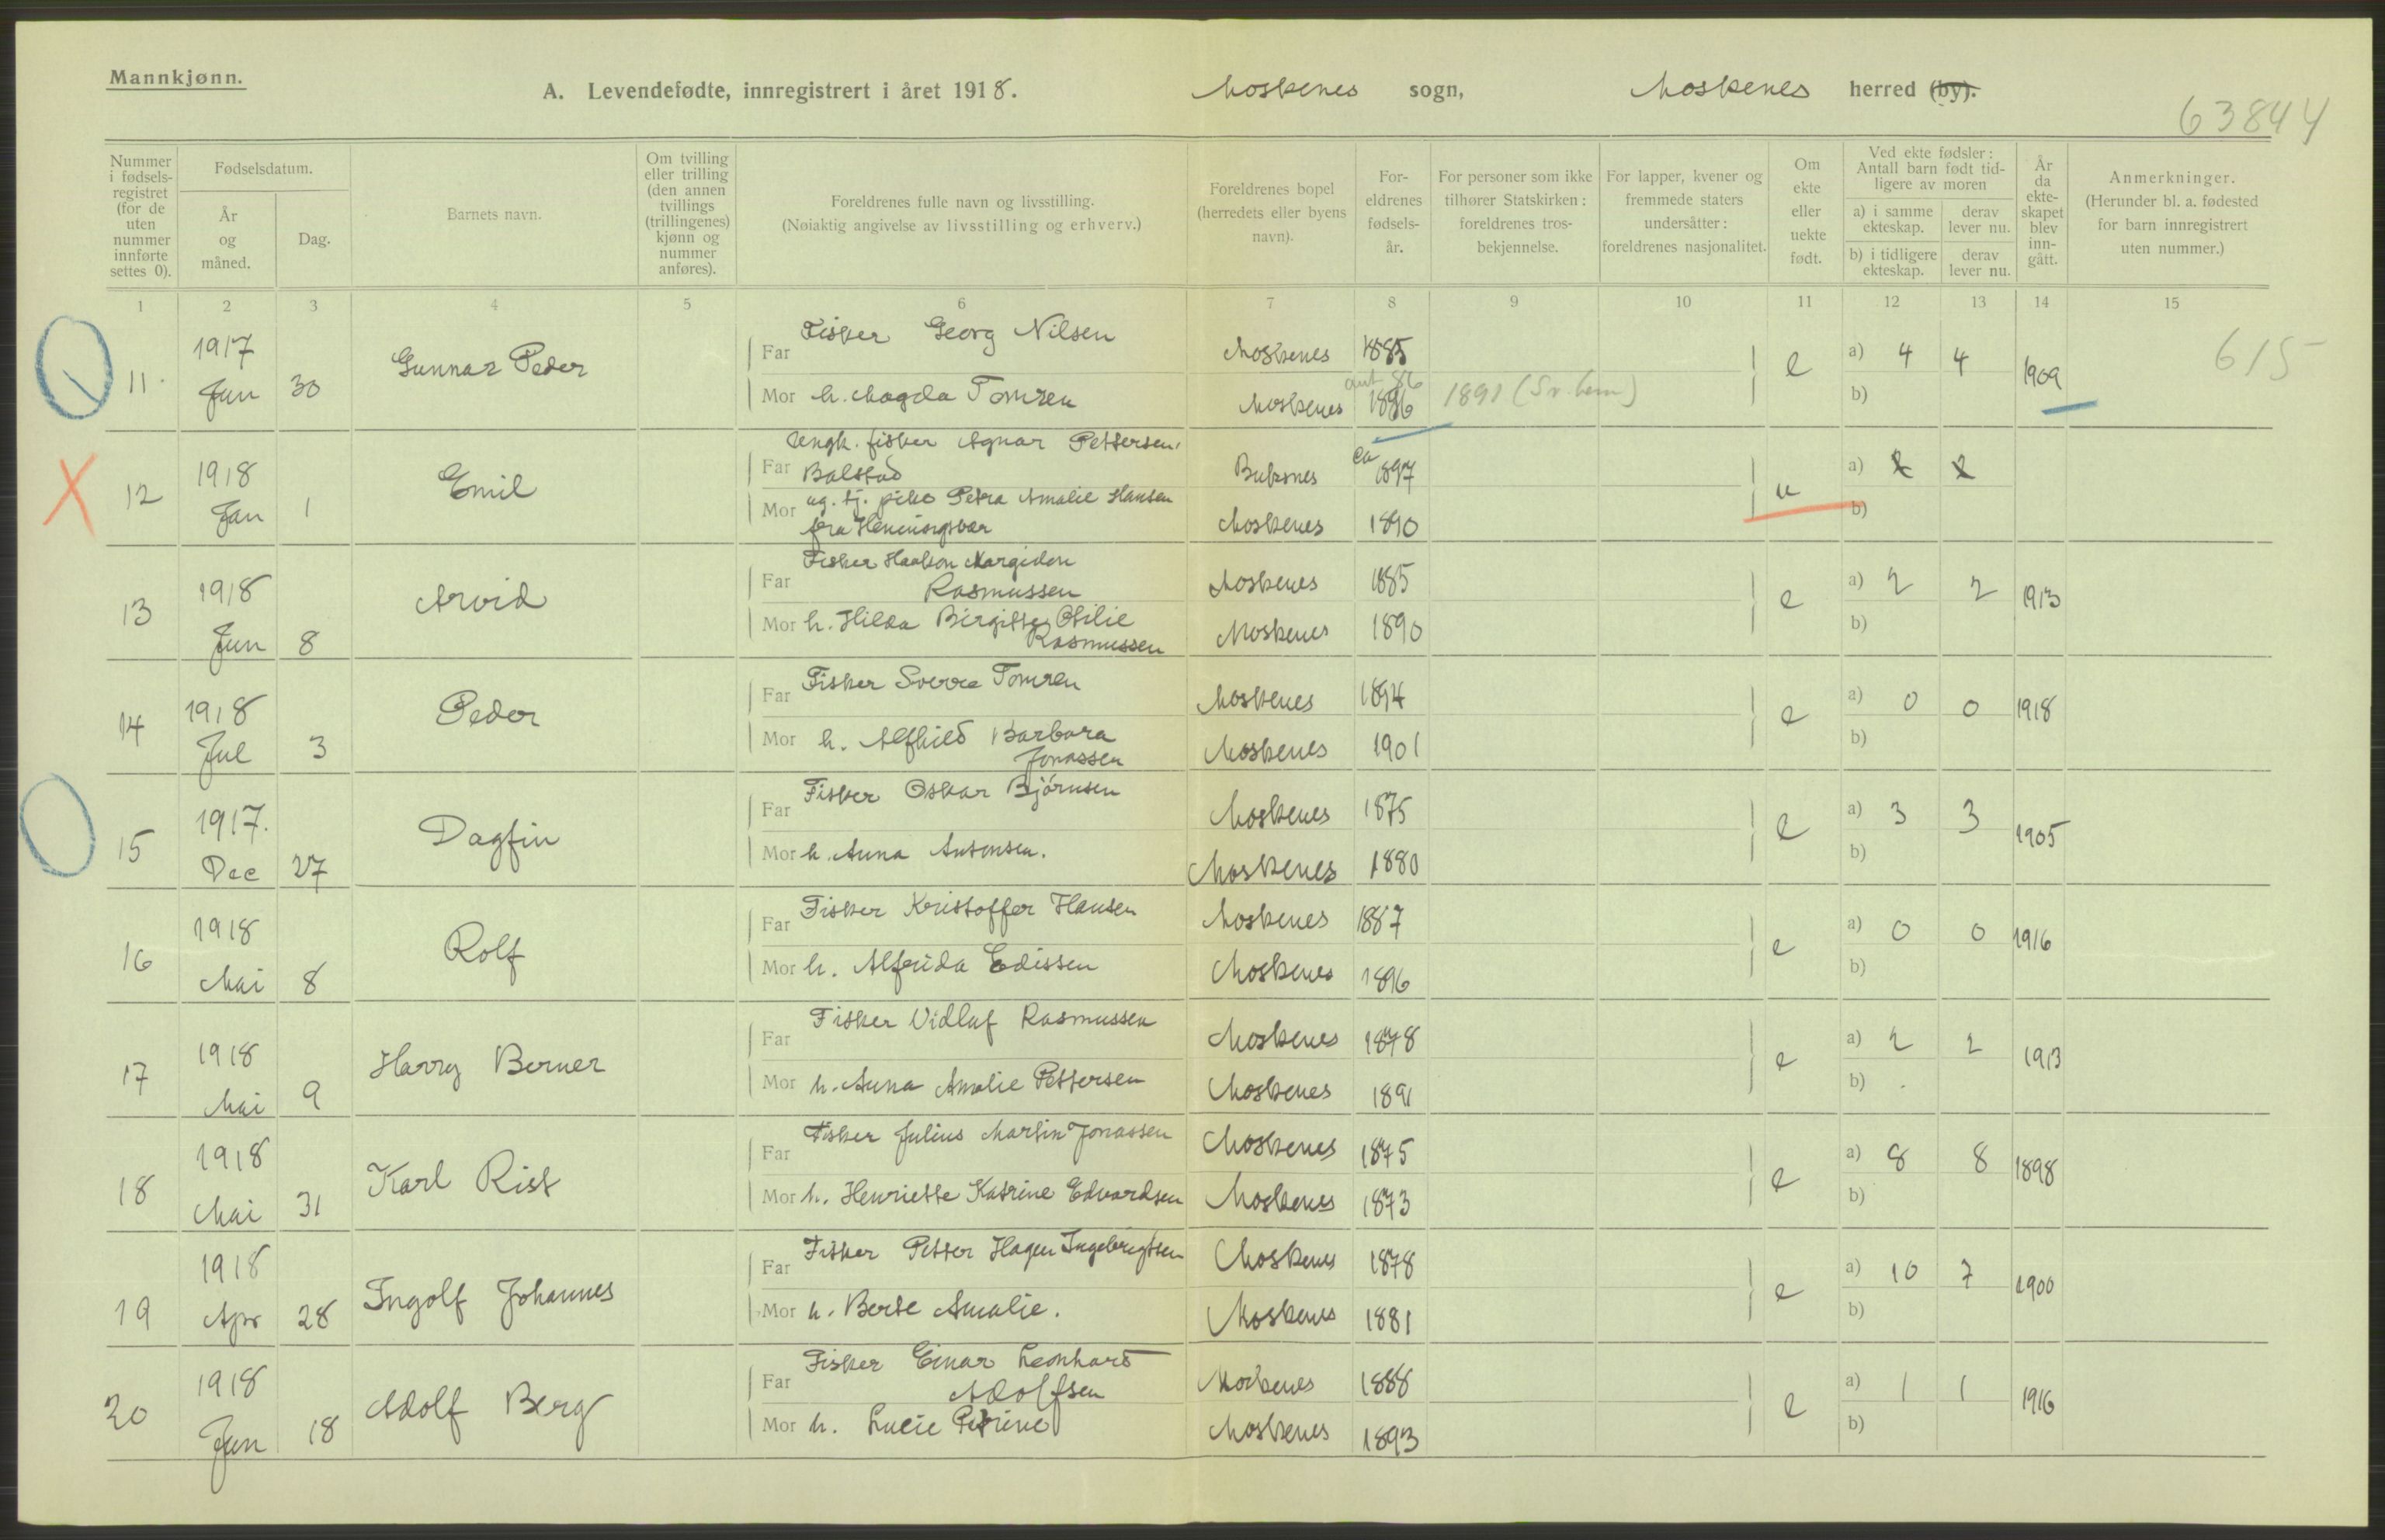 Mannkjønn.
A. Levendefødte, innregistrert i året 1918. Moskenes sogn, Moskenes herred (by).
63844
Nummer i fødsels-registret (for de uten nummer innførte settes 0).
Fødselsdatum.
År og måned.
Dag.
Barnets navn.
Om tvilling eller trilling (den annen tvillings (trillingenes) kjønn og nummer anføres).
Foreldrenes fulle navn og livsstilling.
(Nøiaktig angivelse av livsstilling og erhverv.)
Foreldrenes bopel (herredets eller byens navn).
For-eldrenes fødsels-år.
For personer som ikke tilhører Statskirken: foreldrenes tros-bekjennelse.
For lapper, kvener og fremmede staters undersåtter: foreldrenes nasjonalitet.
Om ekte eller uekte født.
Ved ekte fødsler: Antall barn født tid-ligere av moren
a) i samme ekteskap. derav lever nu.
b) i tidligere ekteskap. derav lever nu.
År da ekte-skapet blev inn-gått.
Anmerkninger.
(Herunder bl. a. fødested for barn innregistrert uten nummer.)
1 2 3 4 5 6 7 8 9 10 11 12 13 14 15
11. 1917 Jan 30 Gunnar Peder
Far Fisker Georg Nilsen Moskenes 1885 e a) 4 4 1909 615
ant 86
Mor h. Magda Tomren Moskenes 1896 1891 (Sv. hem) b)
12 1918 Jan 1 Emil
Far Ungk. fisker Agnar Pettersen, Balstad Buksnes ca 1897 u a) 2 2
Mor ug. tj. pike Petra Amalie Hansen fra Henningsvær Moskenes 1890 b)
13 1918 Jun 8 Arvid
Far Fisker Haakon Margidon Rasmussen Moskenes 1885 e a) 2 2 1913
Mor h. Hilda Birgitte Otilie Rasmussen Moskenes 1890 b)
14 1918 Jul 3 Peder
Far Fisker Sverre Tomren Moskenes 1894 e a) 0 0 1918
Mor h. Alfhild Barbara Jonassen Moskenes 1901 b)
15 1917. Dec 27 Dagfin
Far Fisker Oskar Bjørnsen Moskenes 1875 e a) 3 3 1905
Mor h. Anna Antonsen. Moskenes 1880 b)
16 1918 Mai 8 Rolf
Far Fisker Kristoffer Hansen Moskenes 1887 e a) 0 0 1916
Mor h. Alfrida Edissen Moskenes 1896 b)
17 1918 Mai 9 Harry Berner
Far Fisker Vidluf Rasmussen Moskenes 1878 e a) 2 2 1913
Mor h. Anna Amalie Pettersen Moskenes 1891 b)
18 1918 Mai 31 Karl Rist
Far Fisker Julius Martin Jonassen Moskenes 1875 e a) 8 8 1898
Mor h. Henriette Katrine Edvardsen Moskenes 1873 b)
19 1918 Apr 28 Ingolf Johannes
Far Fisker Petter Hagen Ingebrigtsen Moskenes 1878 e a) 10 7 1900
Mor h. Berte Amalie. Moskenes 1881 b)
20 1918 Jun 18 Adolf Berg
Far Fisker Einar Leonhard Adolfsen Moskenes 1888 e a) 1 1 1916
Mor h. Lucie Petrine Moskenes 1893 b)